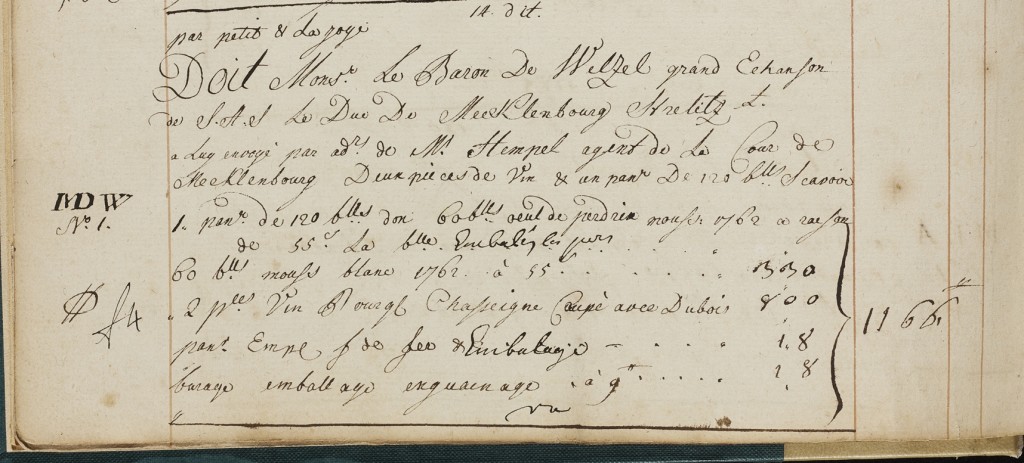 14. dit.
par petit & La joye
Doit Monsr. Le Baron De Welzel grand Echanson
de S.A.S Le Duc De Mecklenbourg Strelitz
a Luy envoyé par adrs de Mr Hempel agent de La Cour de
Mecklenbourg Deux pieces de Vin & un panr De 120 blles Scavoir
MDW
No. 1.
1. panr. de 120 blles don 60 blles oeul de perdrix mouss: 1762 a raison
de 55 s La blle. Embalés les
60 blles mouss blanc 1762 à 55 s 330
2 pces Vin Bourge Chasseigne Coupé avec Dubois 800
panr. Empe f de fer & Embalage 18
barage emballage enguainage à 9 18
1166